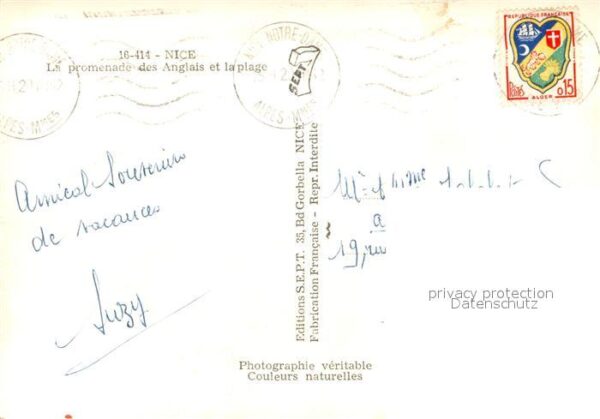 16-414 - NICE
La promenade des Anglais et la plage
NOTRE-D
ALPES-Mmes
SEPT
REPUBLIQUE FRANÇAISE
POSTES
0,15
ALGER
Amical Souvenir
de vacances
Suzy
Editions S.E.P.T. 35, Bd Gorbella NICE
Fabrication Française - Repr. Interdite
Mr et Mme
a
19, rue
privacy protection
Datenschutz
Photographie véritable
Couleurs naturelles